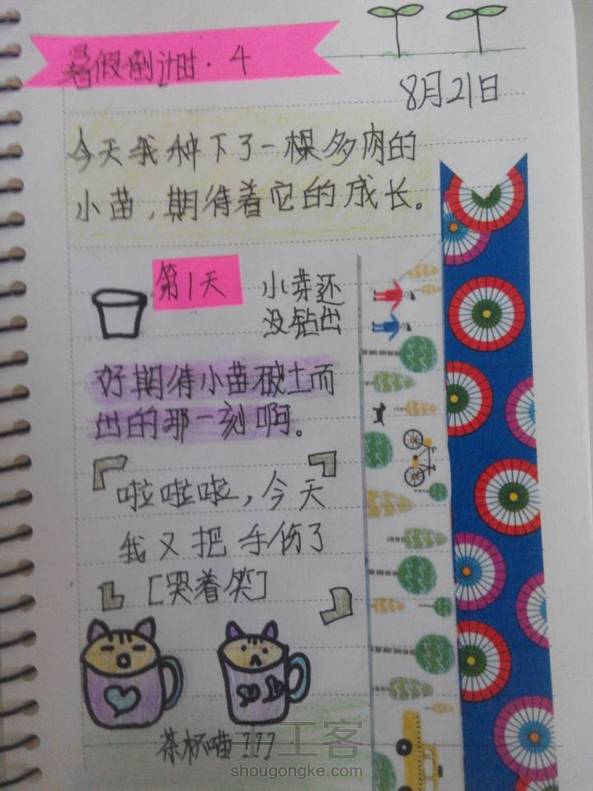 暑假倒计时·4
8月21日
今天我种下了一棵多肉的
小苗，期待着它的成长。
第1天
小芽还
没钻出
好期待小苗破土而
出的那一刻啊。
啦啦啦，今天
我又把手伤了
[哭着笑]
茶杯喵???
手工客
shougongke.com